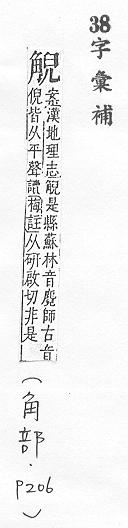 38字彙補
觬
案漢地理志觬是縣蘇林音麑師古音
倪皆从平聲讀補註从研啟切非是
(角部.P206)